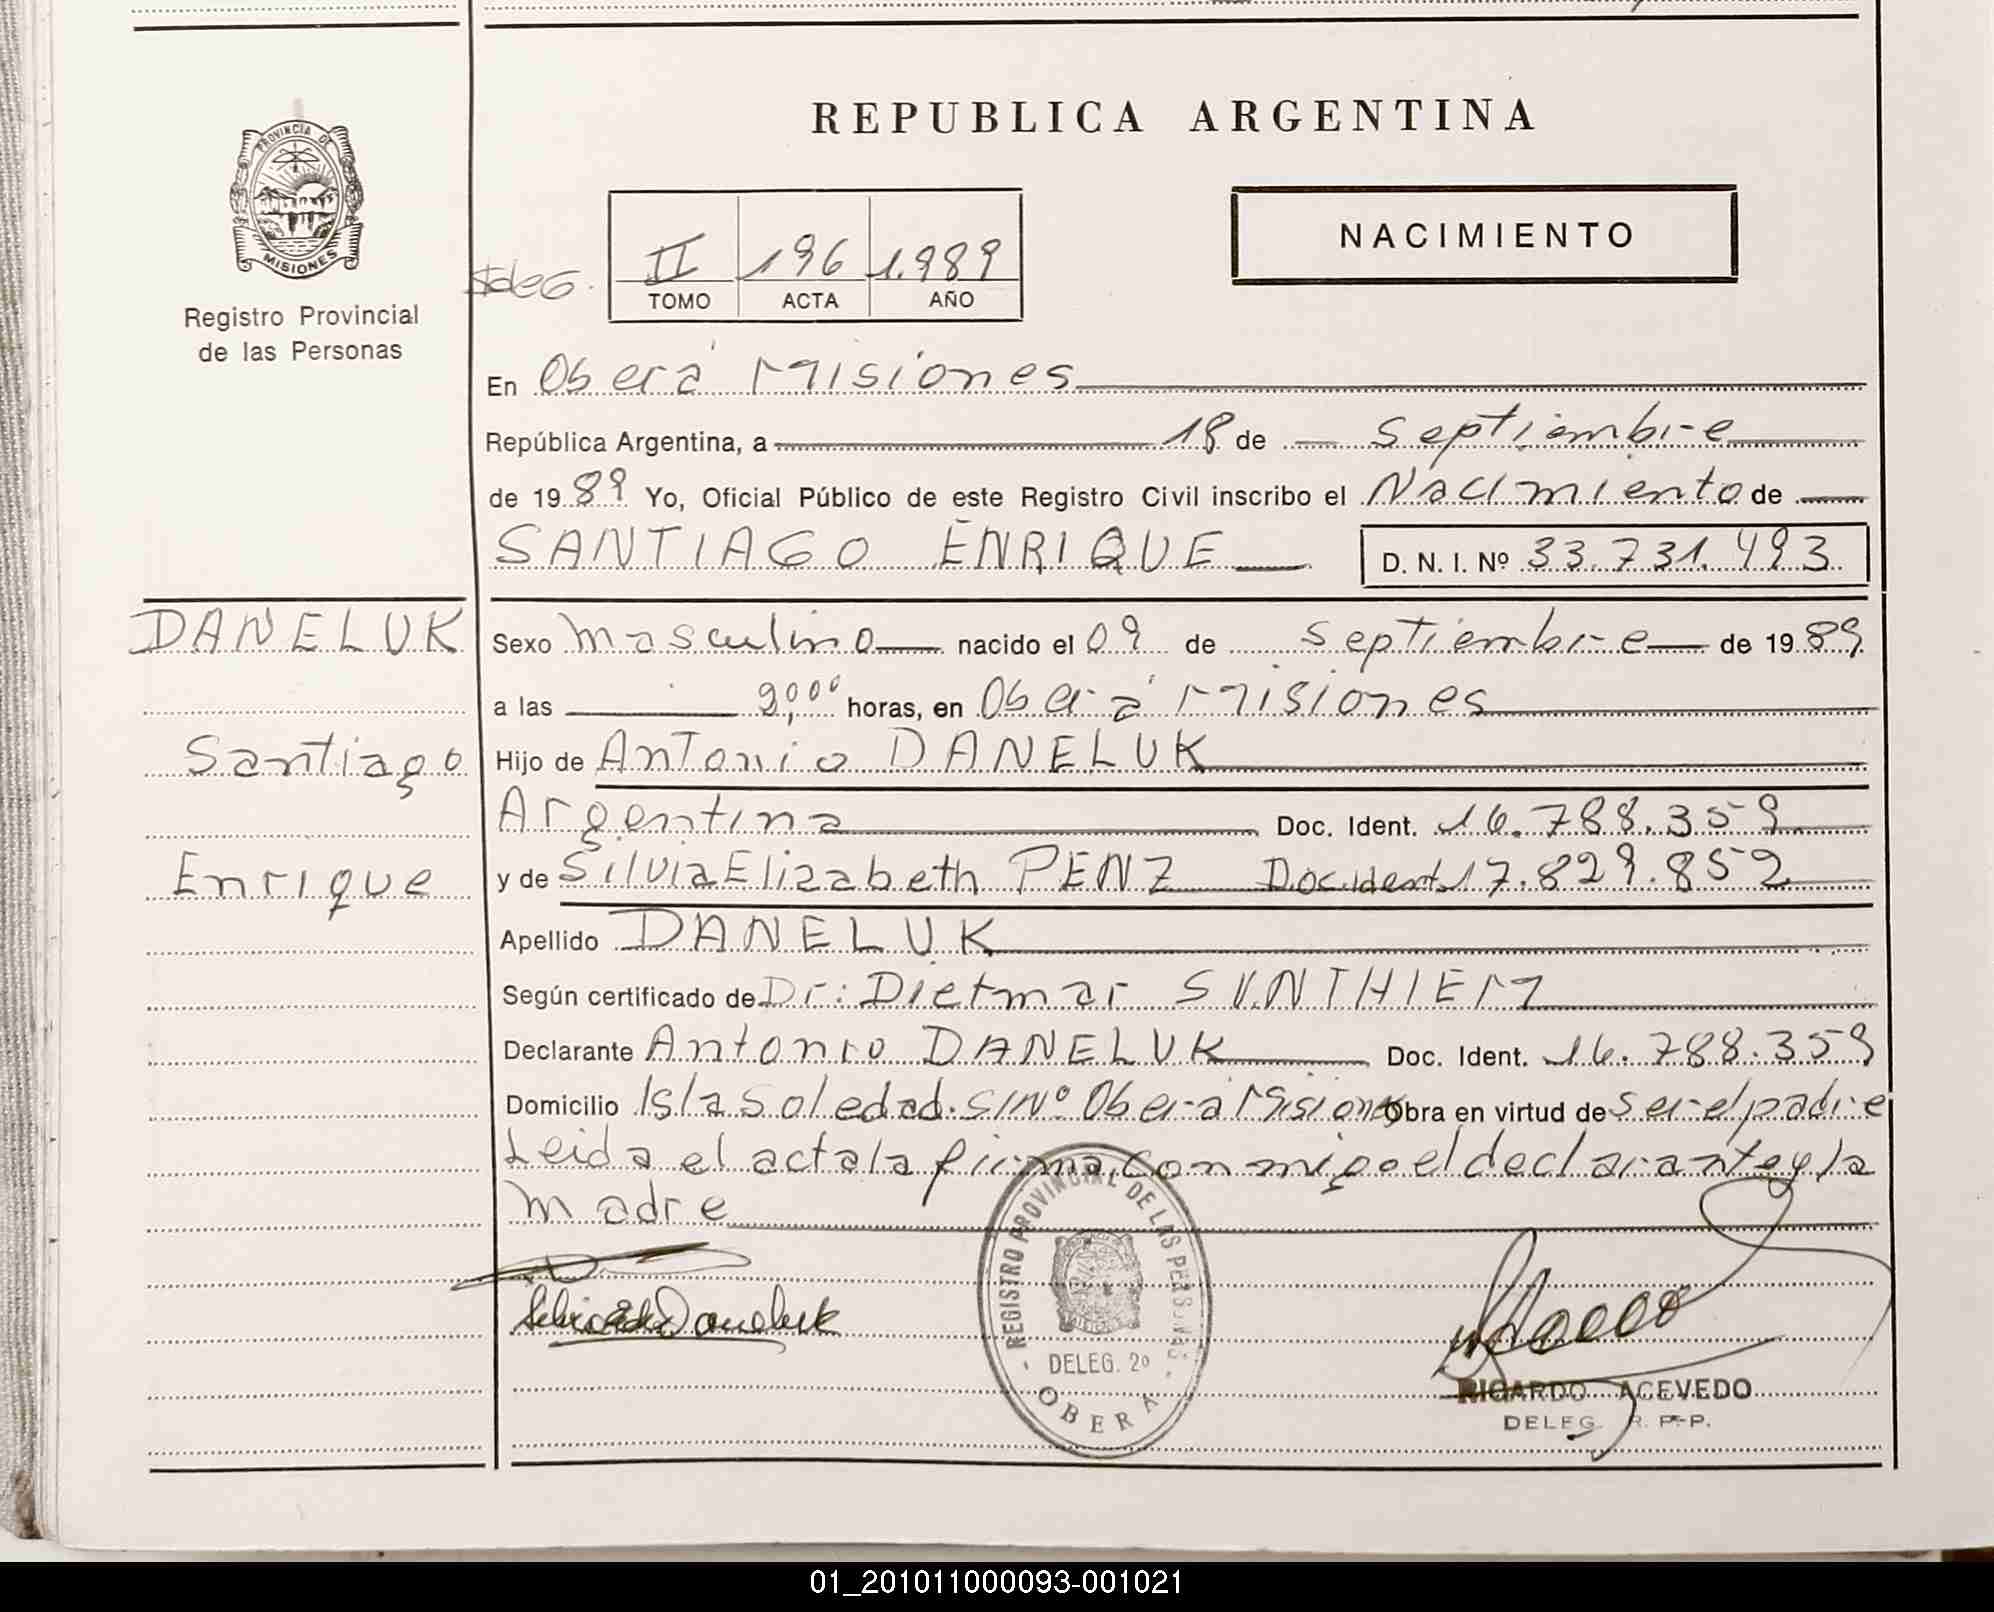 REPUBLICA ARGENTINA
PROVINCIA DE
MISIONES
Registro Provincial
de las Personas
II 196 1.989
TOMO ACTA AÑO
NACIMIENTO
En Oberá Misiones
República Argentina, a 18 de septiembre
de 1989 Yo, Oficial Público de este Registro Civil inscribo el Nacimiento de
SANTIAGO ENRIQUE D. N. I. Nº 33.731.493
DANELUK
Santiago
Enrique
Sexo masculino nacido el 09 de septiembre de 1989
a las horas, en Oberá Misiones
Hijo de Antonio DANELUK
Argentina Doc. Ident. 16.788.359
y de Silvia Elizabeth PENZ Doc.ident. 17.829.852
Apellido DANELUK
Según certificado de Dr: Dietmar
Declarante Antonio DANELUK Doc. Ident. 16.788.359
Domicilio Isla Soledad. S/Nº Oberá Misiones Obra en virtud de ser el padre
Leida el acta la firma conmigo el declarante y la
madre
REGISTRO PROVINCIAL DE LAS PERSONAS
DELEG. 2º
OBERA
Daneluk
RICARDO ACEVEDO
DELEG. R. P. P.
01_201011000093-001021